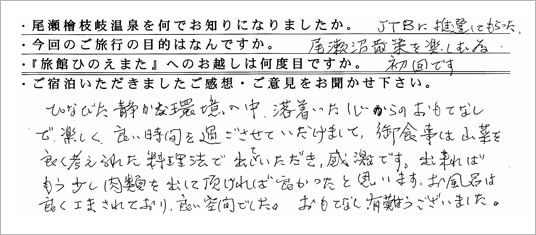 ・尾瀬檜枝岐温泉を何でお知りになりましたか。 JTBに推奨してもらった。
・今回のご旅行の目的はなんですか。 尾瀬沼散策を楽しむ為
・『旅館ひのえまた』へのお越しは何度目ですか。 初回です
・ご宿泊いただきましたご感想・ご意見をお聞かせ下さい。
ひなびた静かな環境の中、落着いた心からのおもてなし
で、楽しく、良い時間を過ごさせていただけまして。御食事は山菜を
良く考えられた料理法で出していただき、感激です。出来れば
もう少し肉類を出して頂ければ良かったと思います。お風呂は
良く工まされており、良い空間でした。 おもてなし有難うございました。